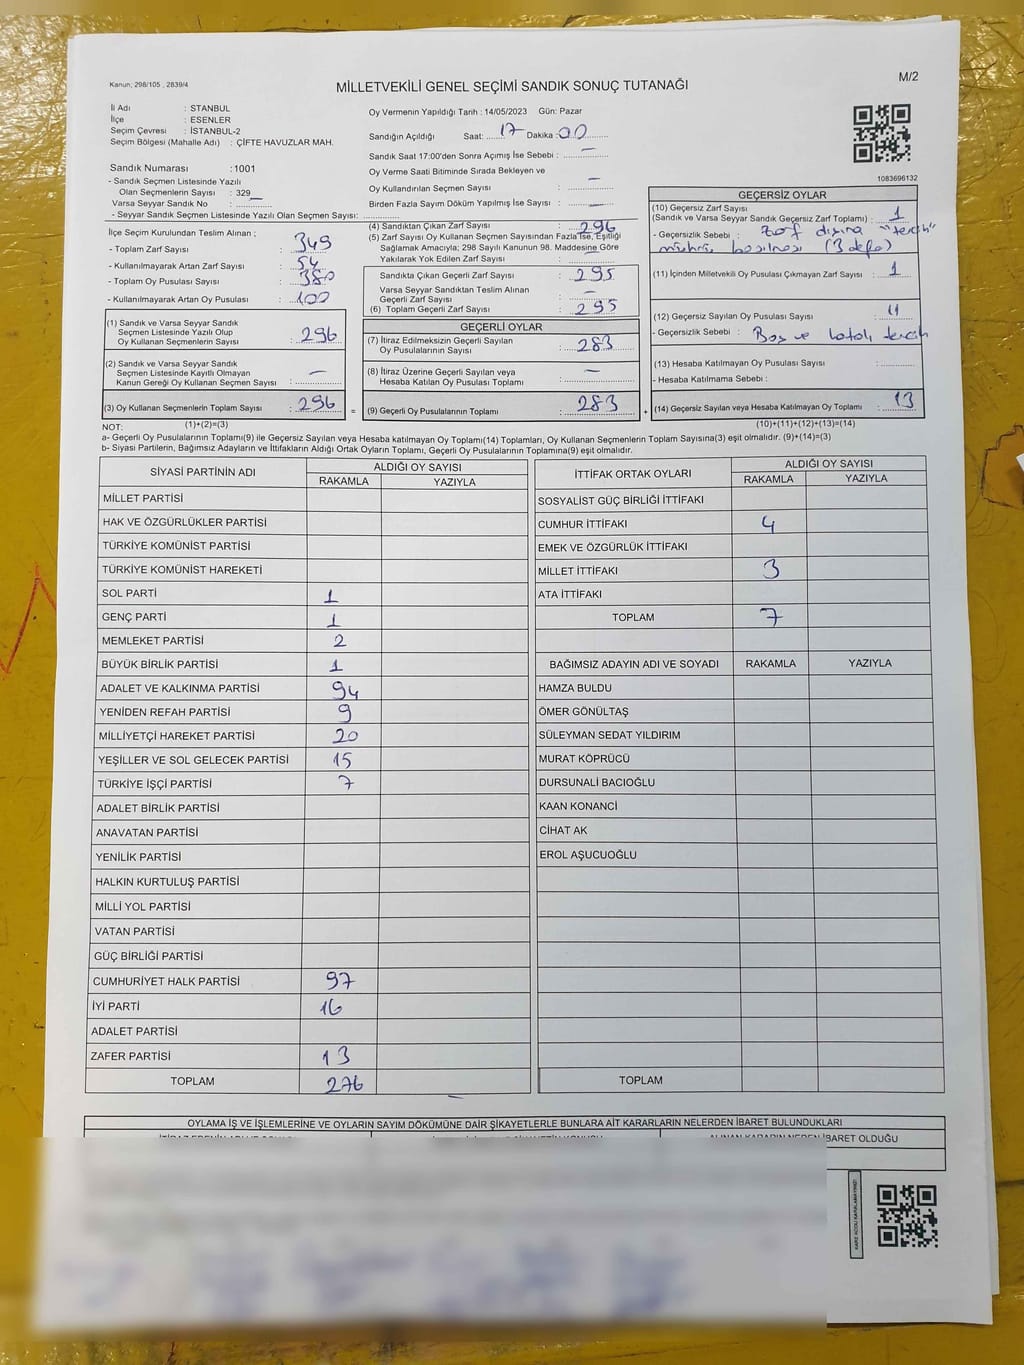 Kanun; 298/105 , 2839/4
MİLLETVEKİLİ GENEL SEÇİMİ SANDIK SONUÇ TUTANAĞI
M/2
İl Adı : STANBUL
İlçe : ESENLER
Seçim Çevresi : İSTANBUL-2
Seçim Bölgesi (Mahalle Adı) : ÇİFTE HAVUZLAR MAH.
Sandık Numarası :1001
- Sandık Seçmen Listesinde Yazılı
Olan Seçmenlerin Sayısı : 329
Varsa Seyyar Sandık No : –
- Seyyar Sandık Seçmen Listesinde Yazılı Olan Seçmen Sayısı:
Oy Vermenin Yapıldığı Tarih : 14/05/2023 Gün: Pazar
Sandığın Açıldığı Saat: 17 Dakika : 00
Sandık Saat 17:00'den Sonra Açımış İse Sebebi : –
Oy Verme Saati Bitiminde Sırada Bekleyen ve
Oy Kullandırılan Seçmen Sayısı : –
Birden Fazla Sayım Döküm Yapılmış İse Sayısı : –
1083696132
İlçe Seçim Kurulundan Teslim Alınan ;
- Toplam Zarf Sayısı : 349
- Kullanılmayarak Artan Zarf Sayısı : 54
- Toplam Oy Pusulası : 380
- Kullanılmayarak Artan Oy Pusulası : 100
(1) Sandık ve Varsa Seyyar Sandık
Seçmen Listesinde Yazılı Olup
Oy Kullanan Seçmenlerin Sayısı : 296
(2) Sandık ve Varsa Seyyar Sandık
Seçmen Listesinde Kayıtlı Olmayan
Kanun Gereği Oy Kullanan Seçmen Sayısı : –
(3) Oy Kullanan Seçmenlerin Toplam Sayısı : 296
(4) Sandıktan Çıkan Zarf Sayısı : 296
(5) Zarf Sayısı Oy Kullanan Seçmen Sayısından Fazla İse, Eşitliği
Sağlamak Amacıyla; 298 Sayılı Kanunun 98. Maddesine Göre
Yakılarak Yok Edilen Zarf Sayısı :
Sandıkta Çıkan Geçerli Zarf Sayısı : 295
Varsa Seyyar Sandıktan Teslim Alınan
Geçerli Zarf Sayısı : –
(6) Toplam Geçerli Zarf Sayısı : 295
GEÇERLİ OYLAR
(7) İtiraz Edilmeksizin Geçerli Sayılan
Oy Pusulalarının Sayısı : 283
(8) İtiraz Üzerine Geçerli Sayılan veya
Hesaba Katılan Oy Pusulası Toplamı : –
= (9) Geçerli Oy Pusulalarının Toplamı : 283
GEÇERSİZ OYLAR
(10) Geçersiz Zarf Sayısı
(Sandık ve Varsa Seyyar Sandık Geçersiz Zarf Toplamı) : 1
- Geçersizlik Sebebi : Zarf dışına "tercih"
mührü basılması (3 defa)
(11) İçinden Milletvekili Oy Pusulası Çıkmayan Zarf Sayısı : 1
(12) Geçersiz Sayılan Oy Pusulası Sayısı : 11
- Geçersizlik Sebebi : Boş ve hatalı tercih
(13) Hesaba Katılmayan Oy Pusulası Sayısı :
- Hesaba Katılmama Sebebi :
+ (14) Geçersiz Sayılan veya Hesaba Katılmayan Oy Toplamı : 13
NOT: (1)+(2)=(3)
(10)+(11)+(12)+(13)=(14)
a- Geçerli Oy Pusulalarının Toplamı(9) ile Geçersiz Sayılan veya Hesaba katılmayan Oy Toplamı(14) Toplamları, Oy Kullanan Seçmenlerin Toplam Sayısına(3) eşit olmalıdır. (9)+(14)=(3)
b- Siyasi Partilerin, Bağımsız Adayların ve İttifakların Aldığı Ortak Oyların Toplamı, Geçerli Oy Pusulalarının Toplamına(9) eşit olmalıdır.
SİYASİ PARTİNİN ADI ALDIĞI OY SAYISI
RAKAMLA YAZIYLA
MİLLET PARTİSİ
HAK VE ÖZGÜRLÜKLER PARTİSİ
TÜRKİYE KOMÜNİST PARTİSİ
TÜRKİYE KOMÜNİST HAREKETİ
SOL PARTİ 1
GENÇ PARTİ 1
MEMLEKET PARTİSİ 2
BÜYÜK BİRLİK PARTİSİ 1
ADALET VE KALKINMA PARTİSİ 94
YENİDEN REFAH PARTİSİ 9
MİLLİYETÇİ HAREKET PARTİSİ 20
YEŞİLLER VE SOL GELECEK PARTİSİ 15
TÜRKİYE İŞÇİ PARTİSİ 7
ADALET BİRLİK PARTİSİ
ANAVATAN PARTİSİ
YENİLİK PARTİSİ
HALKIN KURTULUŞ PARTİSİ
MİLLİ YOL PARTİSİ
VATAN PARTİSİ
GÜÇ BİRLİĞİ PARTİSİ
CUMHURİYET HALK PARTİSİ 97
İYİ PARTİ 16
ADALET PARTİSİ
ZAFER PARTİSİ 13
TOPLAM 276
İTTİFAK ORTAK OYLARI ALDIĞI OY SAYISI
RAKAMLA YAZIYLA
SOSYALİST GÜÇ BİRLİĞİ İTTİFAKI
CUMHUR İTTİFAKI 4
EMEK VE ÖZGÜRLÜK İTTİFAKI
MİLLET İTTİFAKI 3
ATA İTTİFAKI
TOPLAM 7
BAĞIMSIZ ADAYIN ADI VE SOYADI RAKAMLA YAZIYLA
HAMZA BULDU
ÖMER GÖNÜLTAŞ
SÜLEYMAN SEDAT YILDIRIM
MURAT KÖPRÜCÜ
DURSUNALİ BACIOĞLU
KAAN KONANCİ
CİHAT AK
EROL AŞUCUOĞLU
TOPLAM
OYLAMA İŞ VE İŞLEMLERİNE VE OYLARIN SAYIM DÖKÜMÜNE DAİR ŞİKAYETLERLE BUNLARA AİT KARARLARIN NELERDEN İBARET BULUNDUKLARI
ALINAN KARARIN NEDEN İBARET OLDUĞU